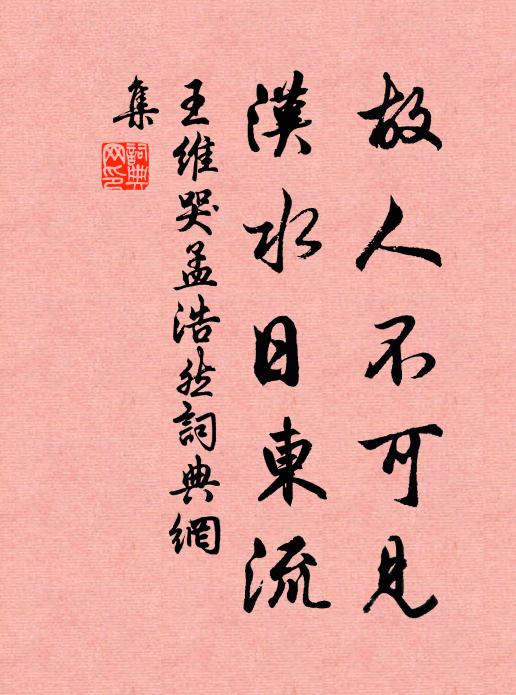 故人不可見
漢水日東流
王維哭孟浩然詞典網
集
詞典
网印